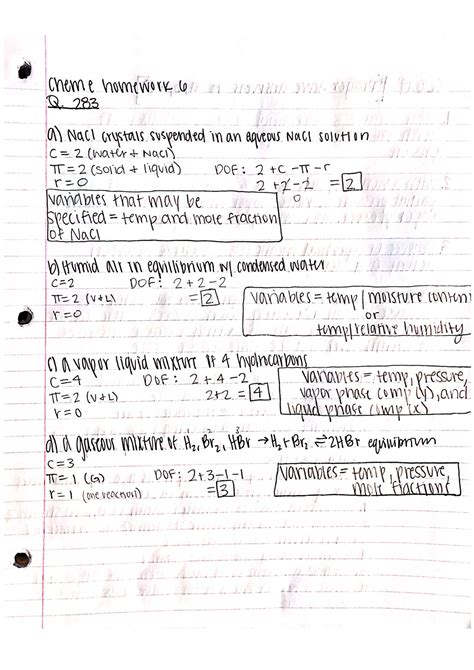 Chem E homework 6
Q. 283
a) NaCl crystals suspended in an aqueous NaCl solution
C = 2 (water + NaCl)
π = 2 (solid + liquid) DOF: 2 + C - π - r
r = 0 2 + 2 - 2 = 2
0
variables that may be
specified = temp and mole fraction
of NaCl
b) Humid air in equilibrium w/ condensed water
C=2 DOF: 2 + 2 - 2
π = 2 (V+L) = 2
r = 0
variables = temp / moisture content
or
temp/relative humidity
c) a vapor liquid mixture of 4 hydrocarbons
C=4 DOF: 2 + 4 - 2
π = 2 (V+L) 2+2 = 4
r = 0
variables = temp, pressure,
vapor phase comp (y), and
liquid phase comp (x)
d) a gaseous mixture of H₂, Br₂, HBr → H₂ + Br₂ ⇌ 2HBr equilibrium
2 3
C=3
π = 1 (G) DOF: 2+3-1-1
r = 1 (one reaction) = 3
variables = temp, pressure,
mole fractions